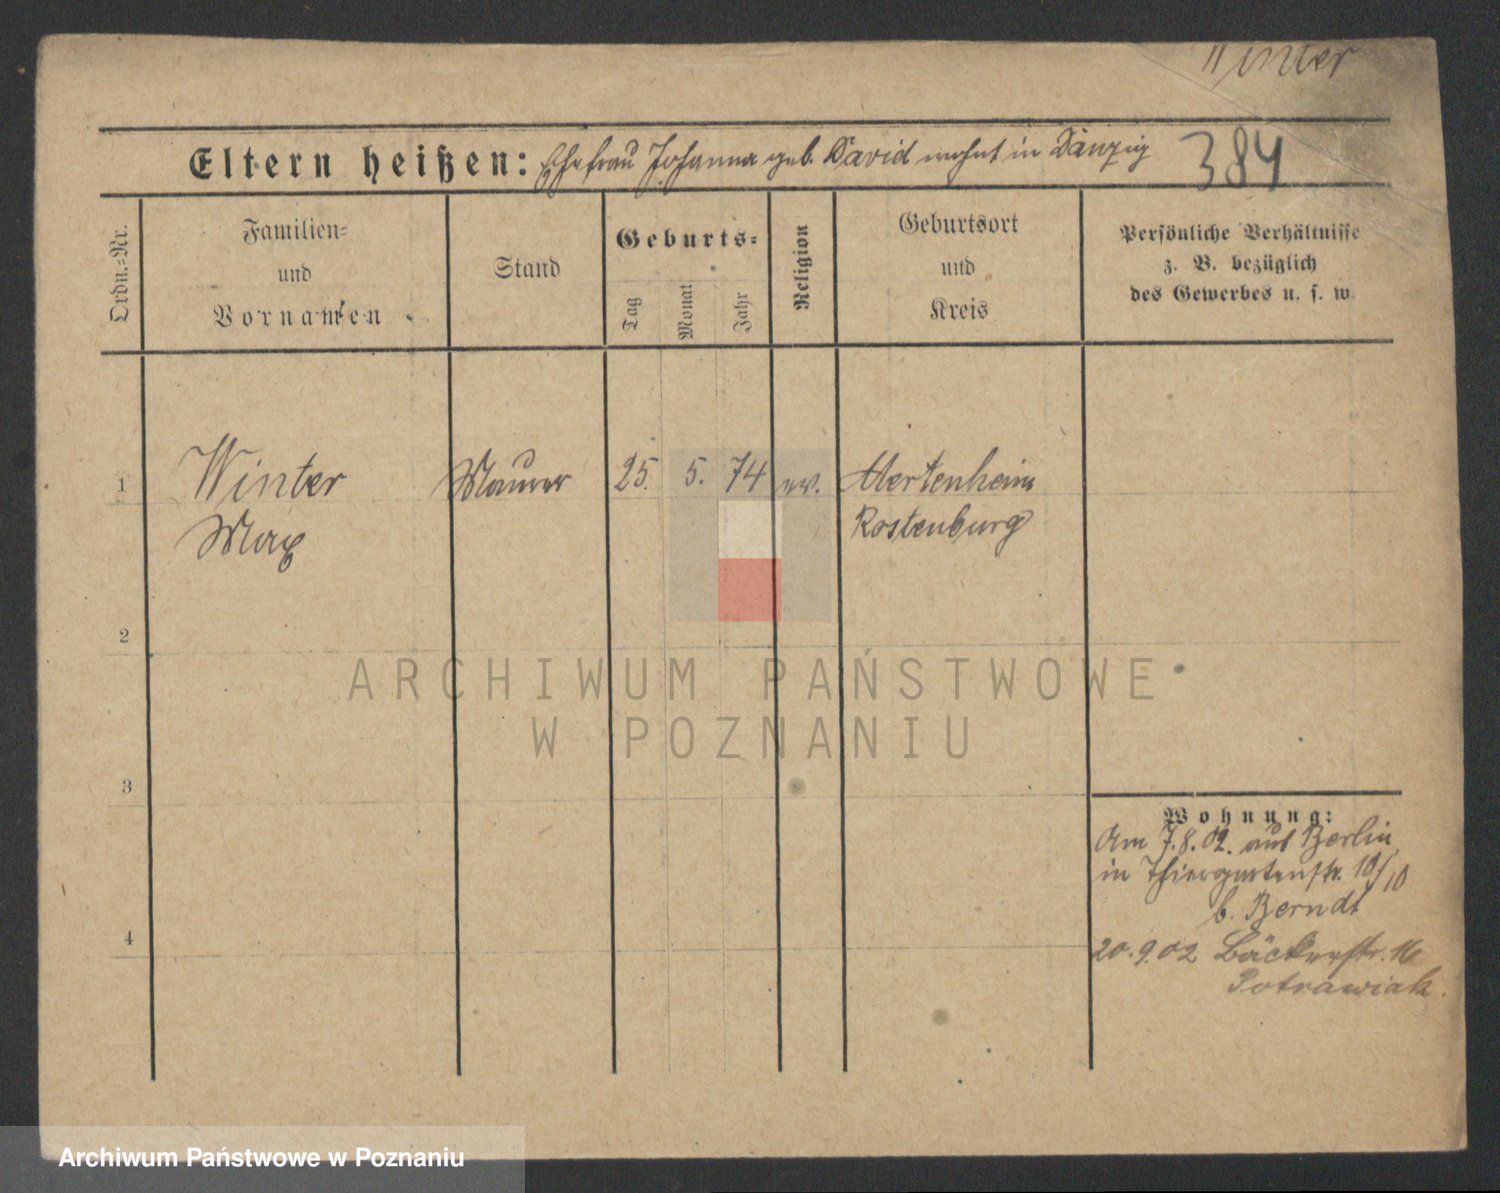 Winter
Eltern heißen: Ehefrau Johanna geb. David wohnt in Danzig 384
Ordn.-Nr.
Familien-
und
Vornamen
Stand
Geburts-
Tag
Monat
Jahr
Religion
Geburtsort
und
Kreis
Persönliche Verhältnisse
z. B. bezüglich
des Gewerbes u. s. w.
1 Winter Maurer 25. 5. 74 ev. Mertenheim
Max Rastenburg
2
ARCHIWUM PAŃSTWOWE
W POZNANIU
3
Wohnung:
Am 7.8.02. aus Berlin
in Thiergartenstr. 10/10
b. Berndt
4
20.9.02 Bäckerstr. 16
Potrawiak.
Archiwum Państwowe w Poznaniu